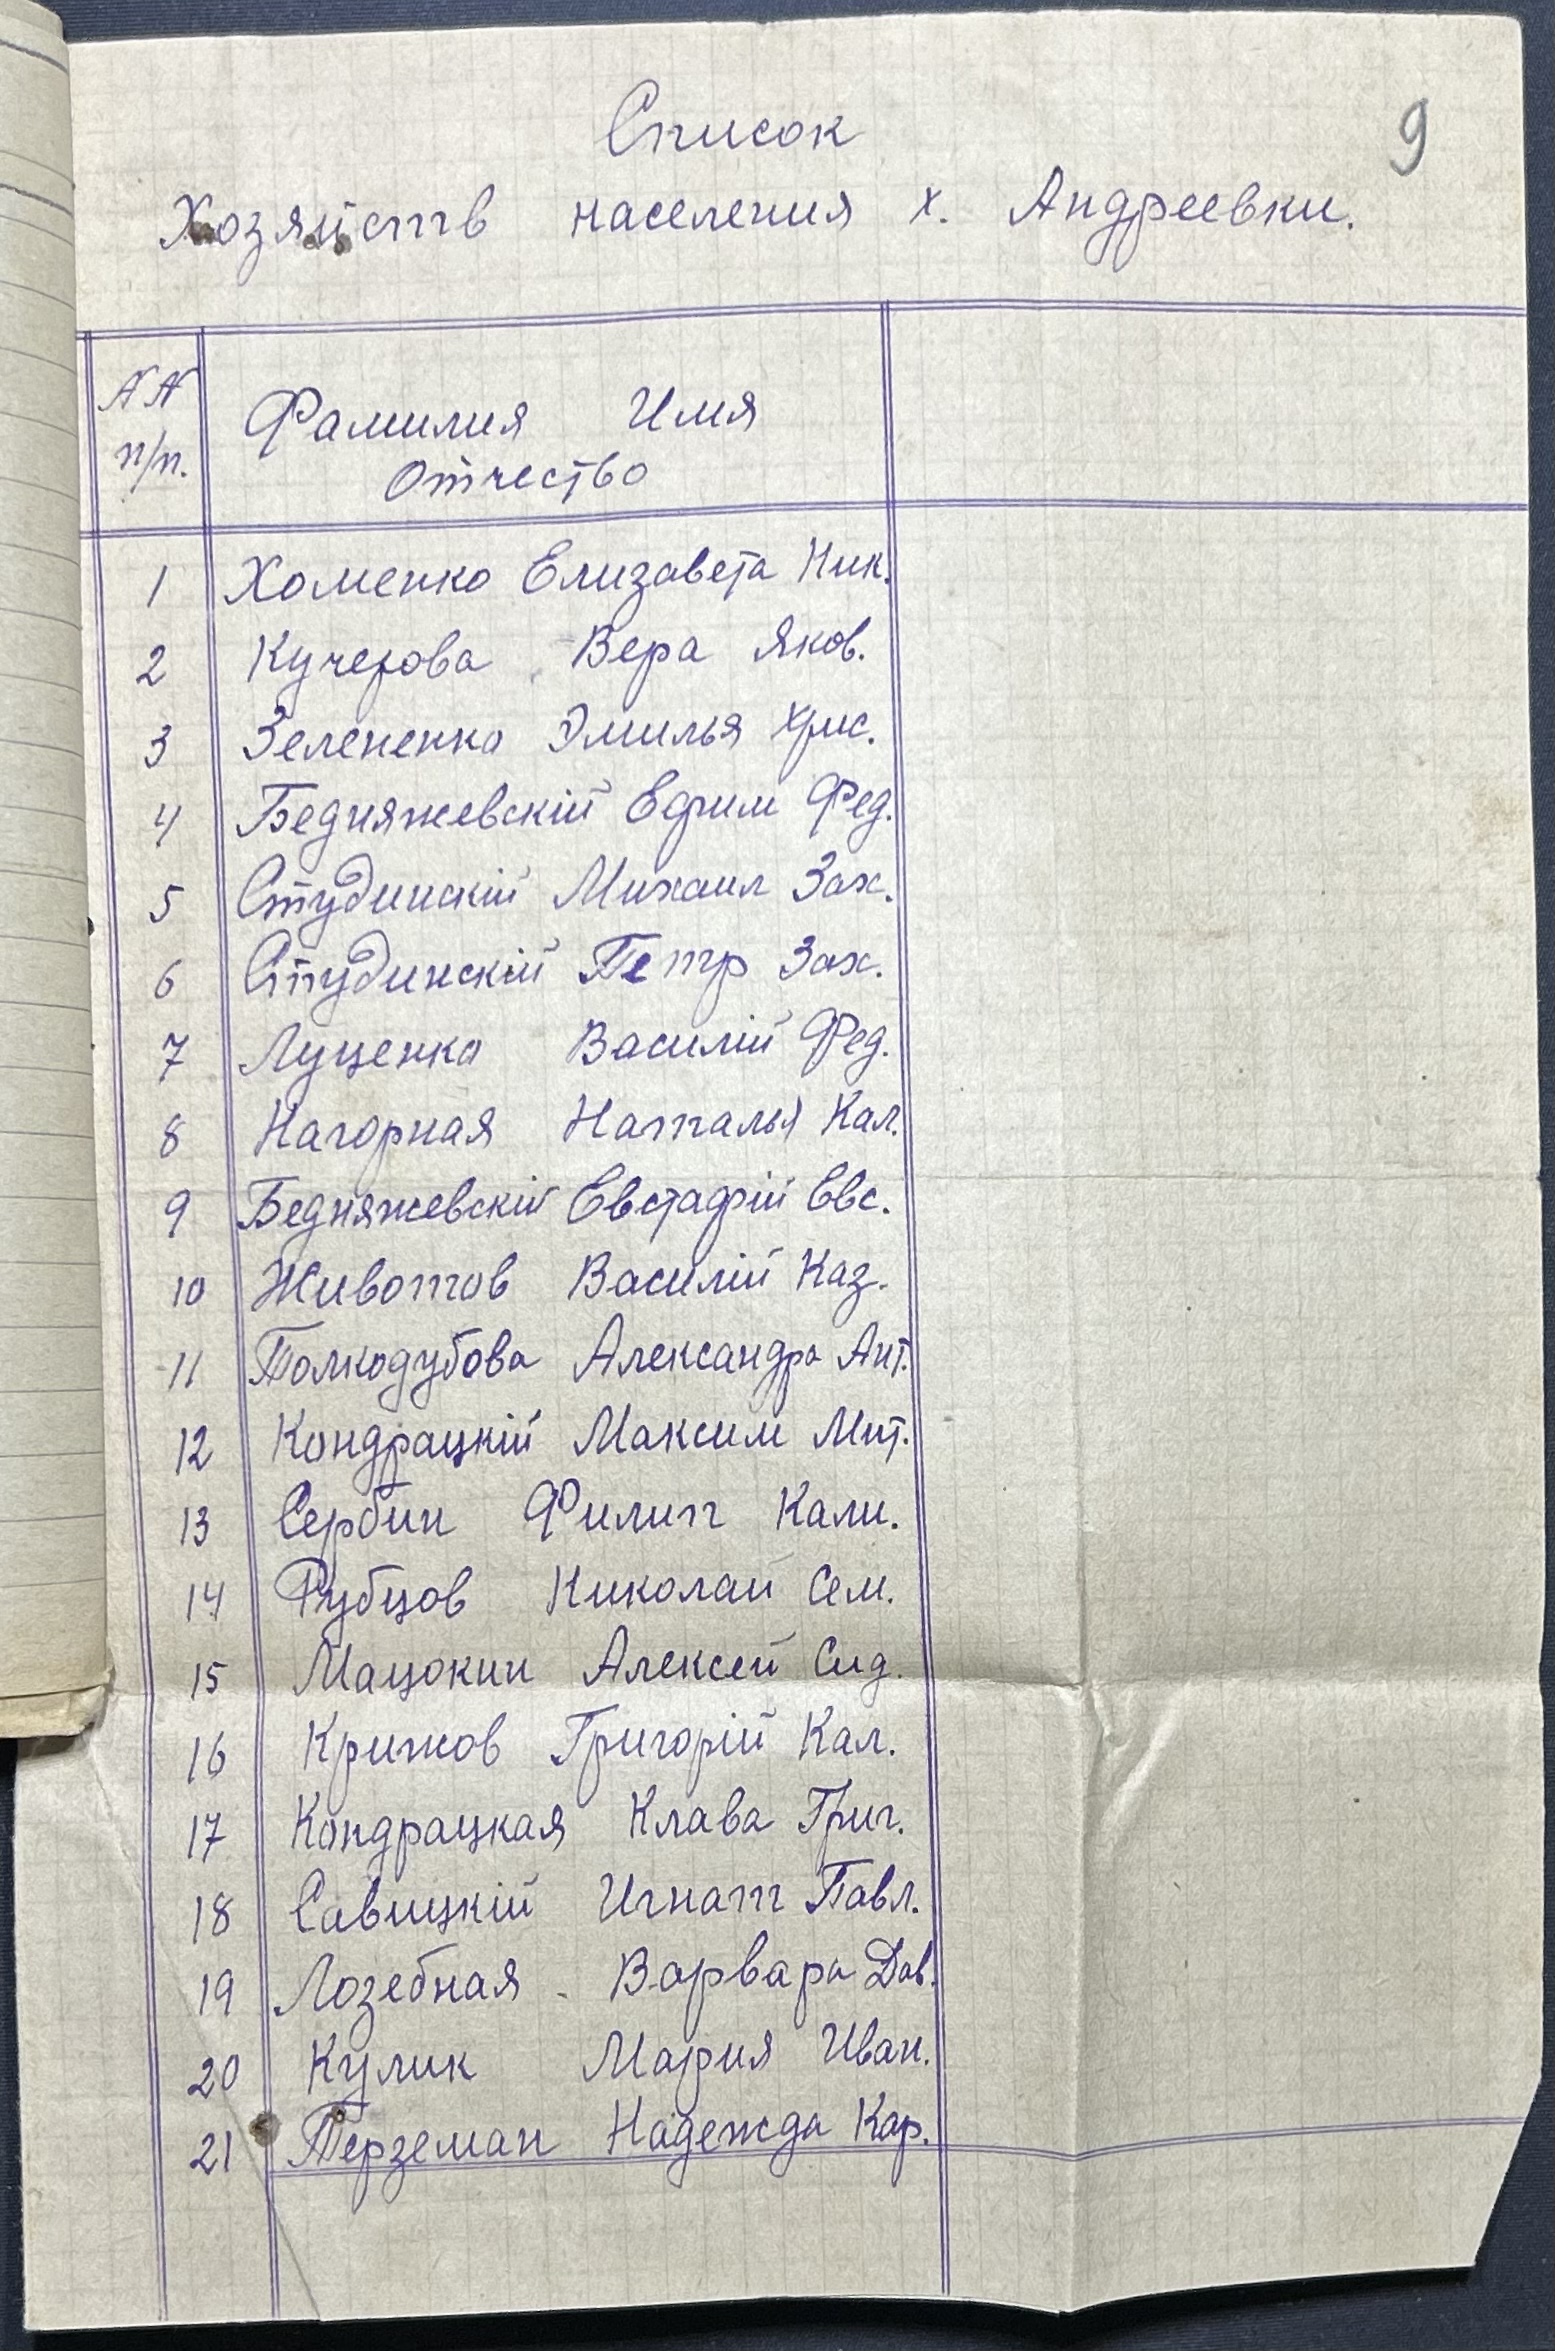 9
Список
Хозяйств населения х. Андреевки.
NN Фамилия Имя
п/п. Отчество
1 Хоменко Елизавета Ник.
2 Кучерова Вера Яков.
3 Зелененко Эмилья Хрис.
4 Бедняжевскій Ефим Фед.
5 Студинскій Михаил Зах.
6 Студинскій Петр Зах.
7 Луценко Василій Фед.
8 Нагорная Наталья Кал.
9 Бедняжевскій Евстафій Евс.
10 Животов Василій Каз.
11 Толкодубова Александра Ант.
12 Кондрацкій Максим Мит.
13 Сербин Филип Кали.
14 Рубцов Николай Сем.
15 Мацокин Алексей Сид.
16 Крижов Григорій Кал.
17 Кондрацкая Клава Григ.
18 Савицкій Игнат Павл.
19 Лозебная Варвара Дав.
20 Кулик Мария Иван.
21 Терземан Надежда Кар.